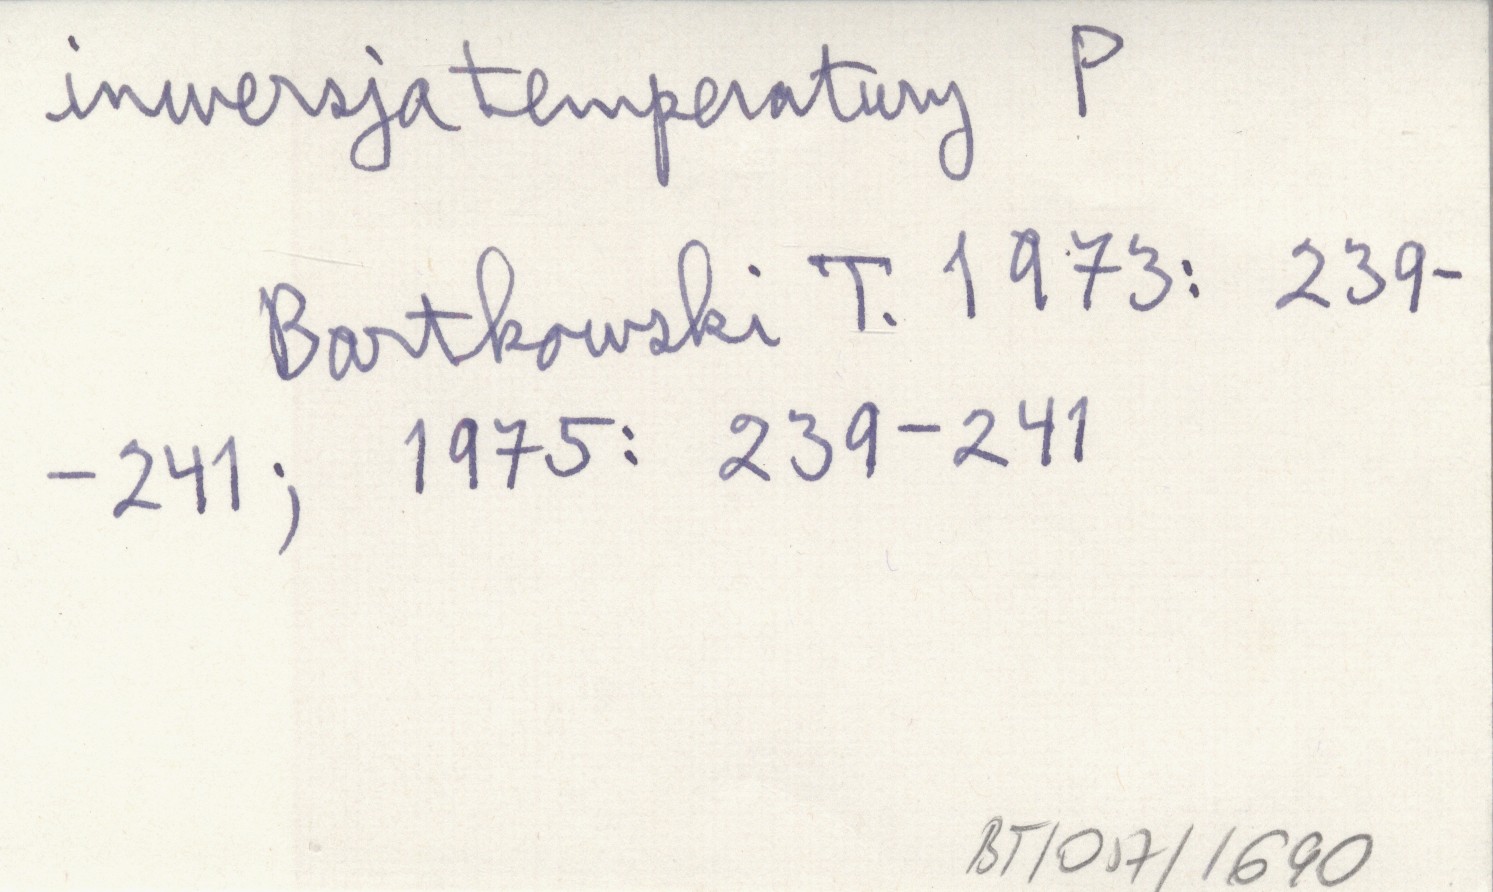 inwersja temperatury P
Bartkowski T. 1973: 239-
-241; 1975: 239-241
BT/017/1690